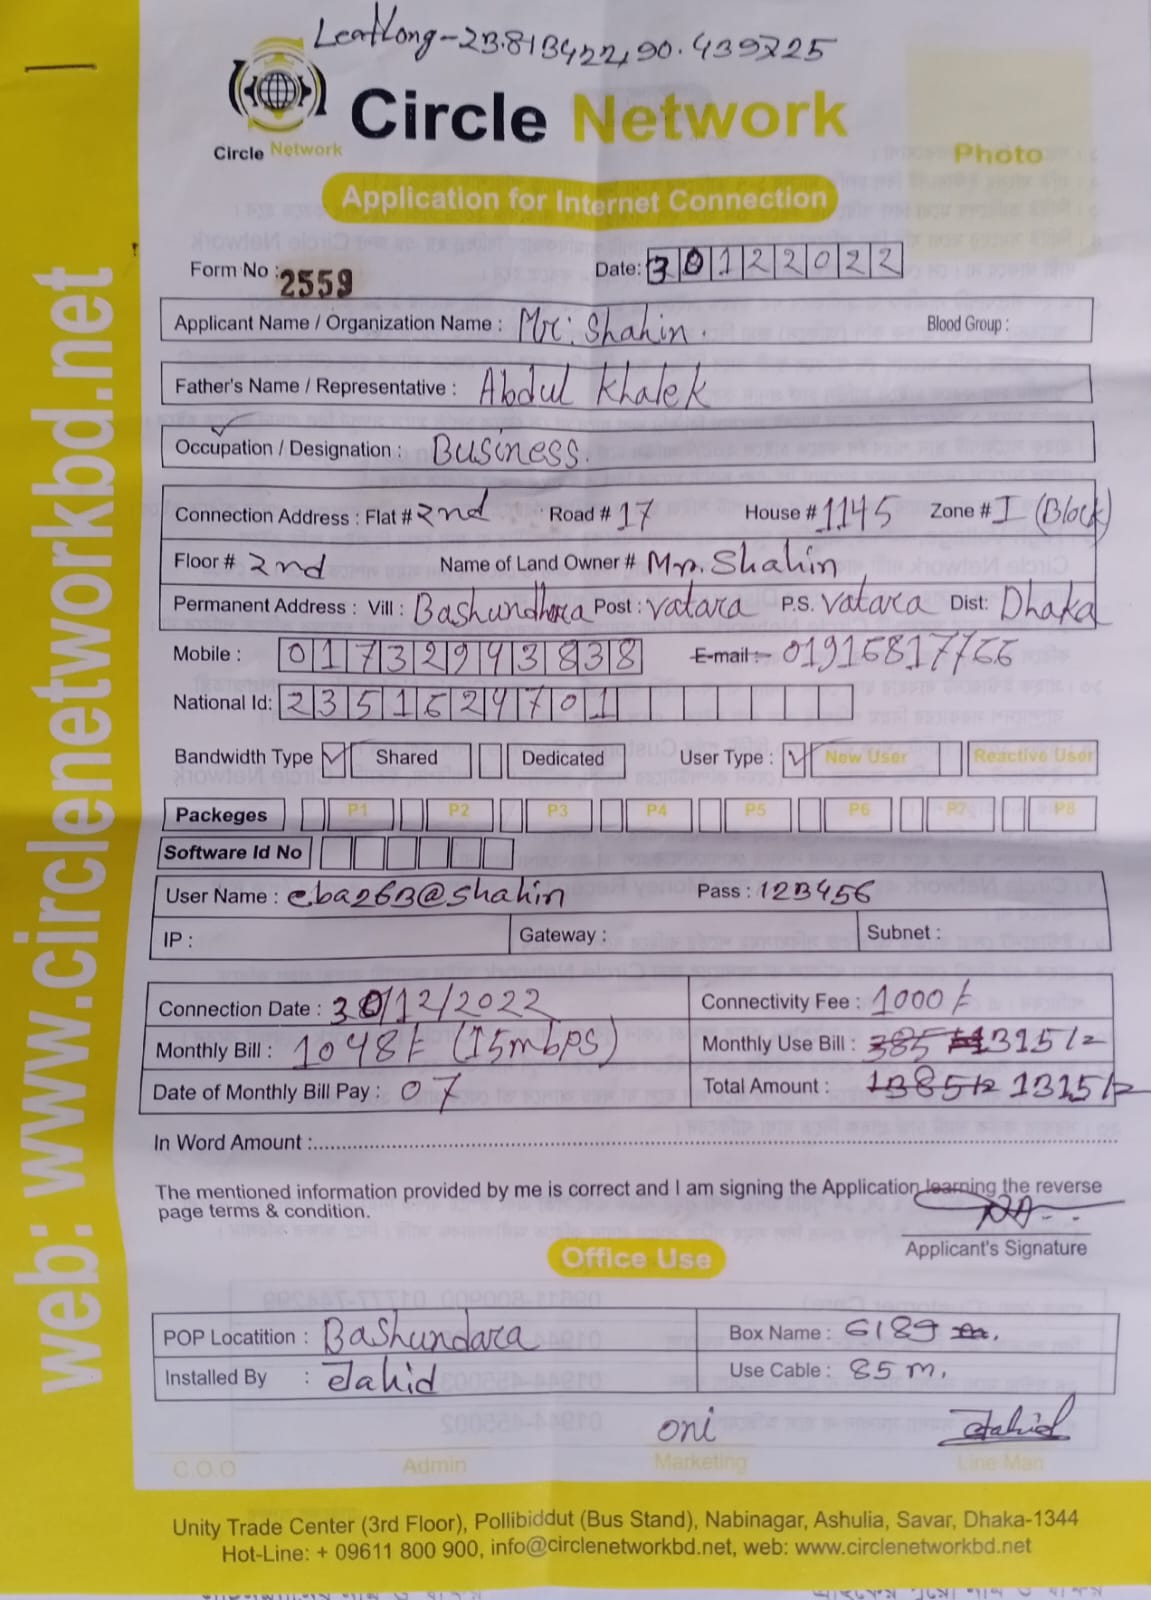 Leatlong-23.813422,90.439725
Circle Network
Circle Network
Photo
Application for Internet Connection
Form No : 2559 Date: 30122022
Applicant Name / Organization Name : Mr: Shahin. Blood Group :
Father's Name / Representative : Abdul Khalek
Occupation / Designation : Business.
Connection Address : Flat # 2nd Road # 17 House # 1145 Zone # I (Block)
Floor # 2nd Name of Land Owner # Mr. Shahin
Permanent Address : Vill : Bashundhora Post : Vatara P.S. Vatara Dist: Dhaka
Mobile : 01732943838 E-mail :- 01916817766
National Id: 2351624701
Bandwidth Type Shared Dedicated User Type : New User Reactive User
Packeges P1 P2 P3 P4 P5 P6 P7 P8
Software Id No
User Name : eba263@shahin Pass : 123456
IP : Gateway : Subnet :
Connection Date : 30/12/2022 Connectivity Fee : 1000/-
Monthly Bill : 1048/- (15mbps) Monthly Use Bill : 385 1315/=
Date of Monthly Bill Pay : 07 Total Amount : 1385/= 1315/=
In Word Amount :
The mentioned information provided by me is correct and I am signing the Application learning the reverse
page terms & condition.
Applicant's Signature
Office Use
POP Locatition : Bashundara Box Name : 6189
Installed By : Jahid Use Cable : 85 m.
oni Jahid
C.O.O Admin Marketing Line Man
Unity Trade Center (3rd Floor), Pollibiddut (Bus Stand), Nabinagar, Ashulia, Savar, Dhaka-1344
Hot-Line: + 09611 800 900, info@circlenetworkbd.net, web: www.circlenetworkbd.net
web: www.circlenetworkbd.net